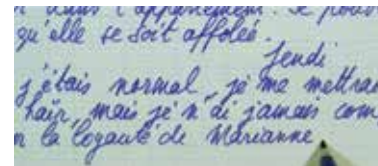 dans l'appartement. Je
qu'elle se soit affolée.
Jeudi
j'étais normal, je me mettrai
haïr, mais je n'ai jamais com
la loyauté de Marianne